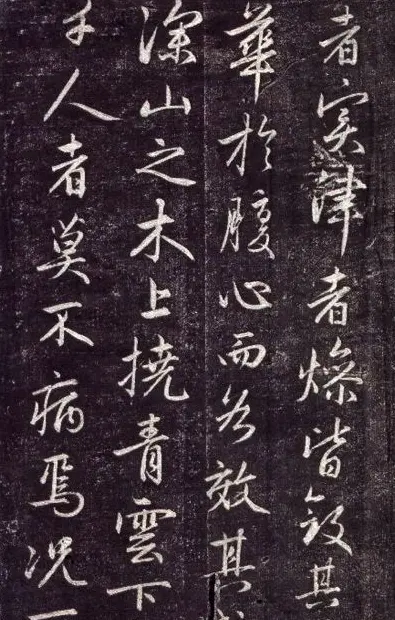 者實津者燥皆斂其
華於腹心而各效其
深山之木上撓青雲下
千人者莫不病焉況